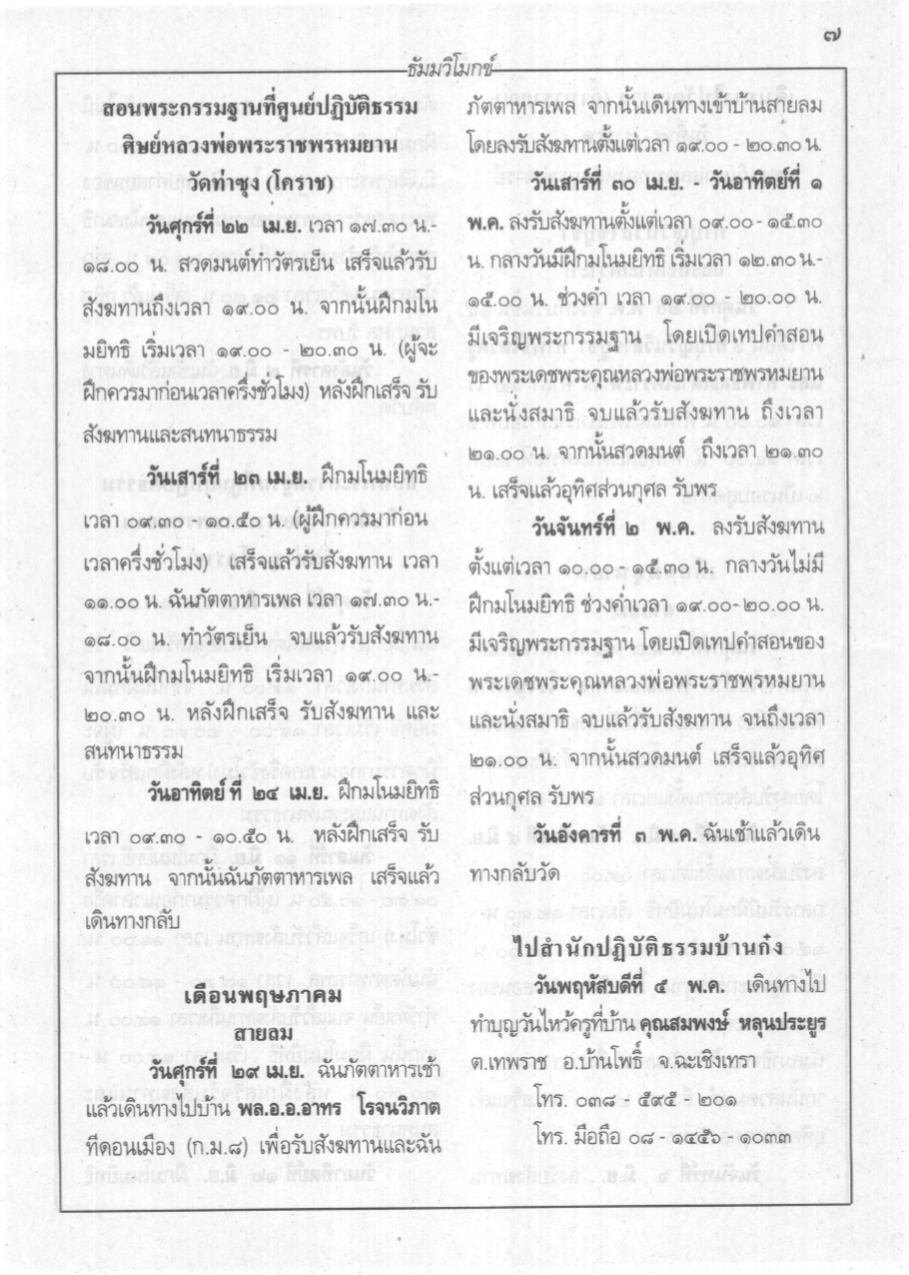 ๗
ธัมมวิโมกข์
สอนพระกรรมฐานที่ศูนย์ปฏิบัติธรรม
ศิษย์หลวงพ่อพระราชพรหมยาน
วัดท่าซุง (โคราช)
วันศุกร์ที่ ๒๒ เม.ย. เวลา ๑๗.๓๐ น.-
๑๘.๐๐ น. สวดมนต์ทำวัตรเย็น เสร็จแล้วรับ
สังฆทานถึงเวลา ๑๙.๐๐ น. จากนั้นฝึกมโน
มยิทธิ เริ่มเวลา ๑๙.๐๐ - ๒๐.๓๐ น. (ผู้จะ
ฝึกควรมาก่อนเวลาครึ่งชั่วโมง) หลังฝึกเสร็จ รับ
สังฆทานและสนทนาธรรม
วันเสาร์ที่ ๒๓ เม.ย. ฝึกมโนมยิทธิ
เวลา ๐๙.๓๐ - ๑๐.๕๐ น. (ผู้ฝึกควรมาก่อน
เวลาครึ่งชั่วโมง) เสร็จแล้วรับสังฆทาน เวลา
๑๑.๐๐ น. ฉันภัตตาหารเพล เวลา ๑๗.๓๐ น.-
๑๘.๐๐ น. ทำวัตรเย็น จบแล้วรับสังฆทาน
จากนั้นฝึกมโนมยิทธิ เริ่มเวลา ๑๙.๐๐ น.-
๒๐.๓๐ น. หลังฝึกเสร็จ รับสังฆทาน และ
สนทนาธรรม
วันอาทิตย์ ที่ ๒๔ เม.ย. ฝึกมโนมยิทธิ
เวลา ๐๙.๓๐ - ๑๐.๕๐ น. หลังฝึกเสร็จ รับ
สังฆทาน จากนั้นฉันภัตตาหารเพล เสร็จแล้ว
เดินทางกลับ
เดือนพฤษภาคม
สายลม
วันศุกร์ที่ ๒๙ เม.ย. ฉันภัตตาหารเช้า
แล้วเดินทางไปบ้าน พล.อ.อ.อาทร โรจนวิภาต
ที่ดอนเมือง (ก.ม.๘) เพื่อรับสังฆทานและฉัน
ภัตตาหารเพล จากนั้นเดินทางเข้าบ้านสายลม
โดยลงรับสังฆทานตั้งแต่เวลา ๑๙.๐๐ - ๒๐.๓๐ น.
วันเสาร์ที่ ๓๐ เม.ย. - วันอาทิตย์ที่ ๑
พ.ค. ลงรับสังฆทานตั้งแต่เวลา ๐๙.๐๐ - ๑๕.๓๐
น. กลางวันมีฝึกมโนมยิทธิ เริ่มเวลา ๑๒.๓๐ น.-
๑๕.๐๐ น. ช่วงค่ำ เวลา ๑๙.๐๐ - ๒๐.๐๐ น.
มีเจริญพระกรรมฐาน โดยเปิดเทปคำสอน
ของพระเดชพระคุณหลวงพ่อพระราชพรหมยาน
และนั่งสมาธิ จบแล้วรับสังฆทาน ถึงเวลา
๒๑.๐๐ น. จากนั้นสวดมนต์ ถึงเวลา ๒๑.๓๐
น. เสร็จแล้วอุทิศส่วนกุศล รับพร
วันจันทร์ที่ ๒ พ.ค. ลงรับสังฆทาน
ตั้งแต่เวลา ๑๐.๐๐ - ๑๕.๓๐ น. กลางวันไม่มี
ฝึกมโนมยิทธิ ช่วงค่ำเวลา ๑๙.๐๐- ๒๐.๐๐ น.
มีเจริญพระกรรมฐาน โดยเปิดเทปคำสอนของ
พระเดชพระคุณหลวงพ่อพระราชพรหมยาน
และนั่งสมาธิ จบแล้วรับสังฆทาน จนถึงเวลา
๒๑.๐๐ น. จากนั้นสวดมนต์ เสร็จแล้วอุทิศ
ส่วนกุศล รับพร
วันอังคารที่ ๓ พ.ค. ฉันเช้าแล้วเดิน
ทางกลับวัด
ไปสำนักปฏิบัติธรรมบ้านก๋ง
วันพฤหัสบดีที่ ๕ พ.ค. เดินทางไป
ทำบุญวันไหว้ครูที่บ้าน คุณสมพงษ์ หลุนประยูร
ต.เทพราช อ.บ้านโพธิ์ จ.ฉะเชิงเทรา
โทร. ๐๓๘ - ๕๙๕ - ๒๐๑
โทร. มือถือ ๐๘ - ๑๔๕๖ - ๑๐๓๓